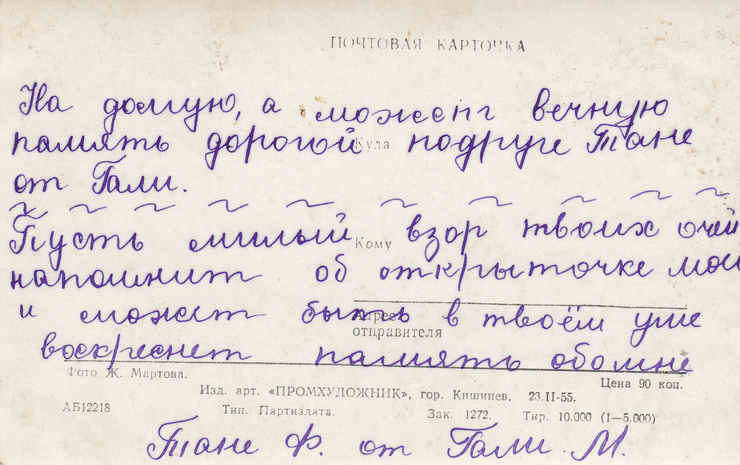 ПОЧТОВАЯ КАРТОЧКА
На долгую, а может вечную
память дорогой подруге Тане
Куда
от Гали.
Пусть милый взор твоих очей
Кому
напомнит об открыточке мой
и может быть в твоём уме
Адрес
отправителя
воскреснет память обо мне
Фото Ж. Мартова.
Цена 90 коп.
Изд. арт. «ПРОМХУДОЖНИК», гор. Кишинев, 23-II-55.
АБ12218 Тип. Партиздата. Зак. 1272. Тир. 10.000 (1—5.000)
Тане Ф. от Гали М.